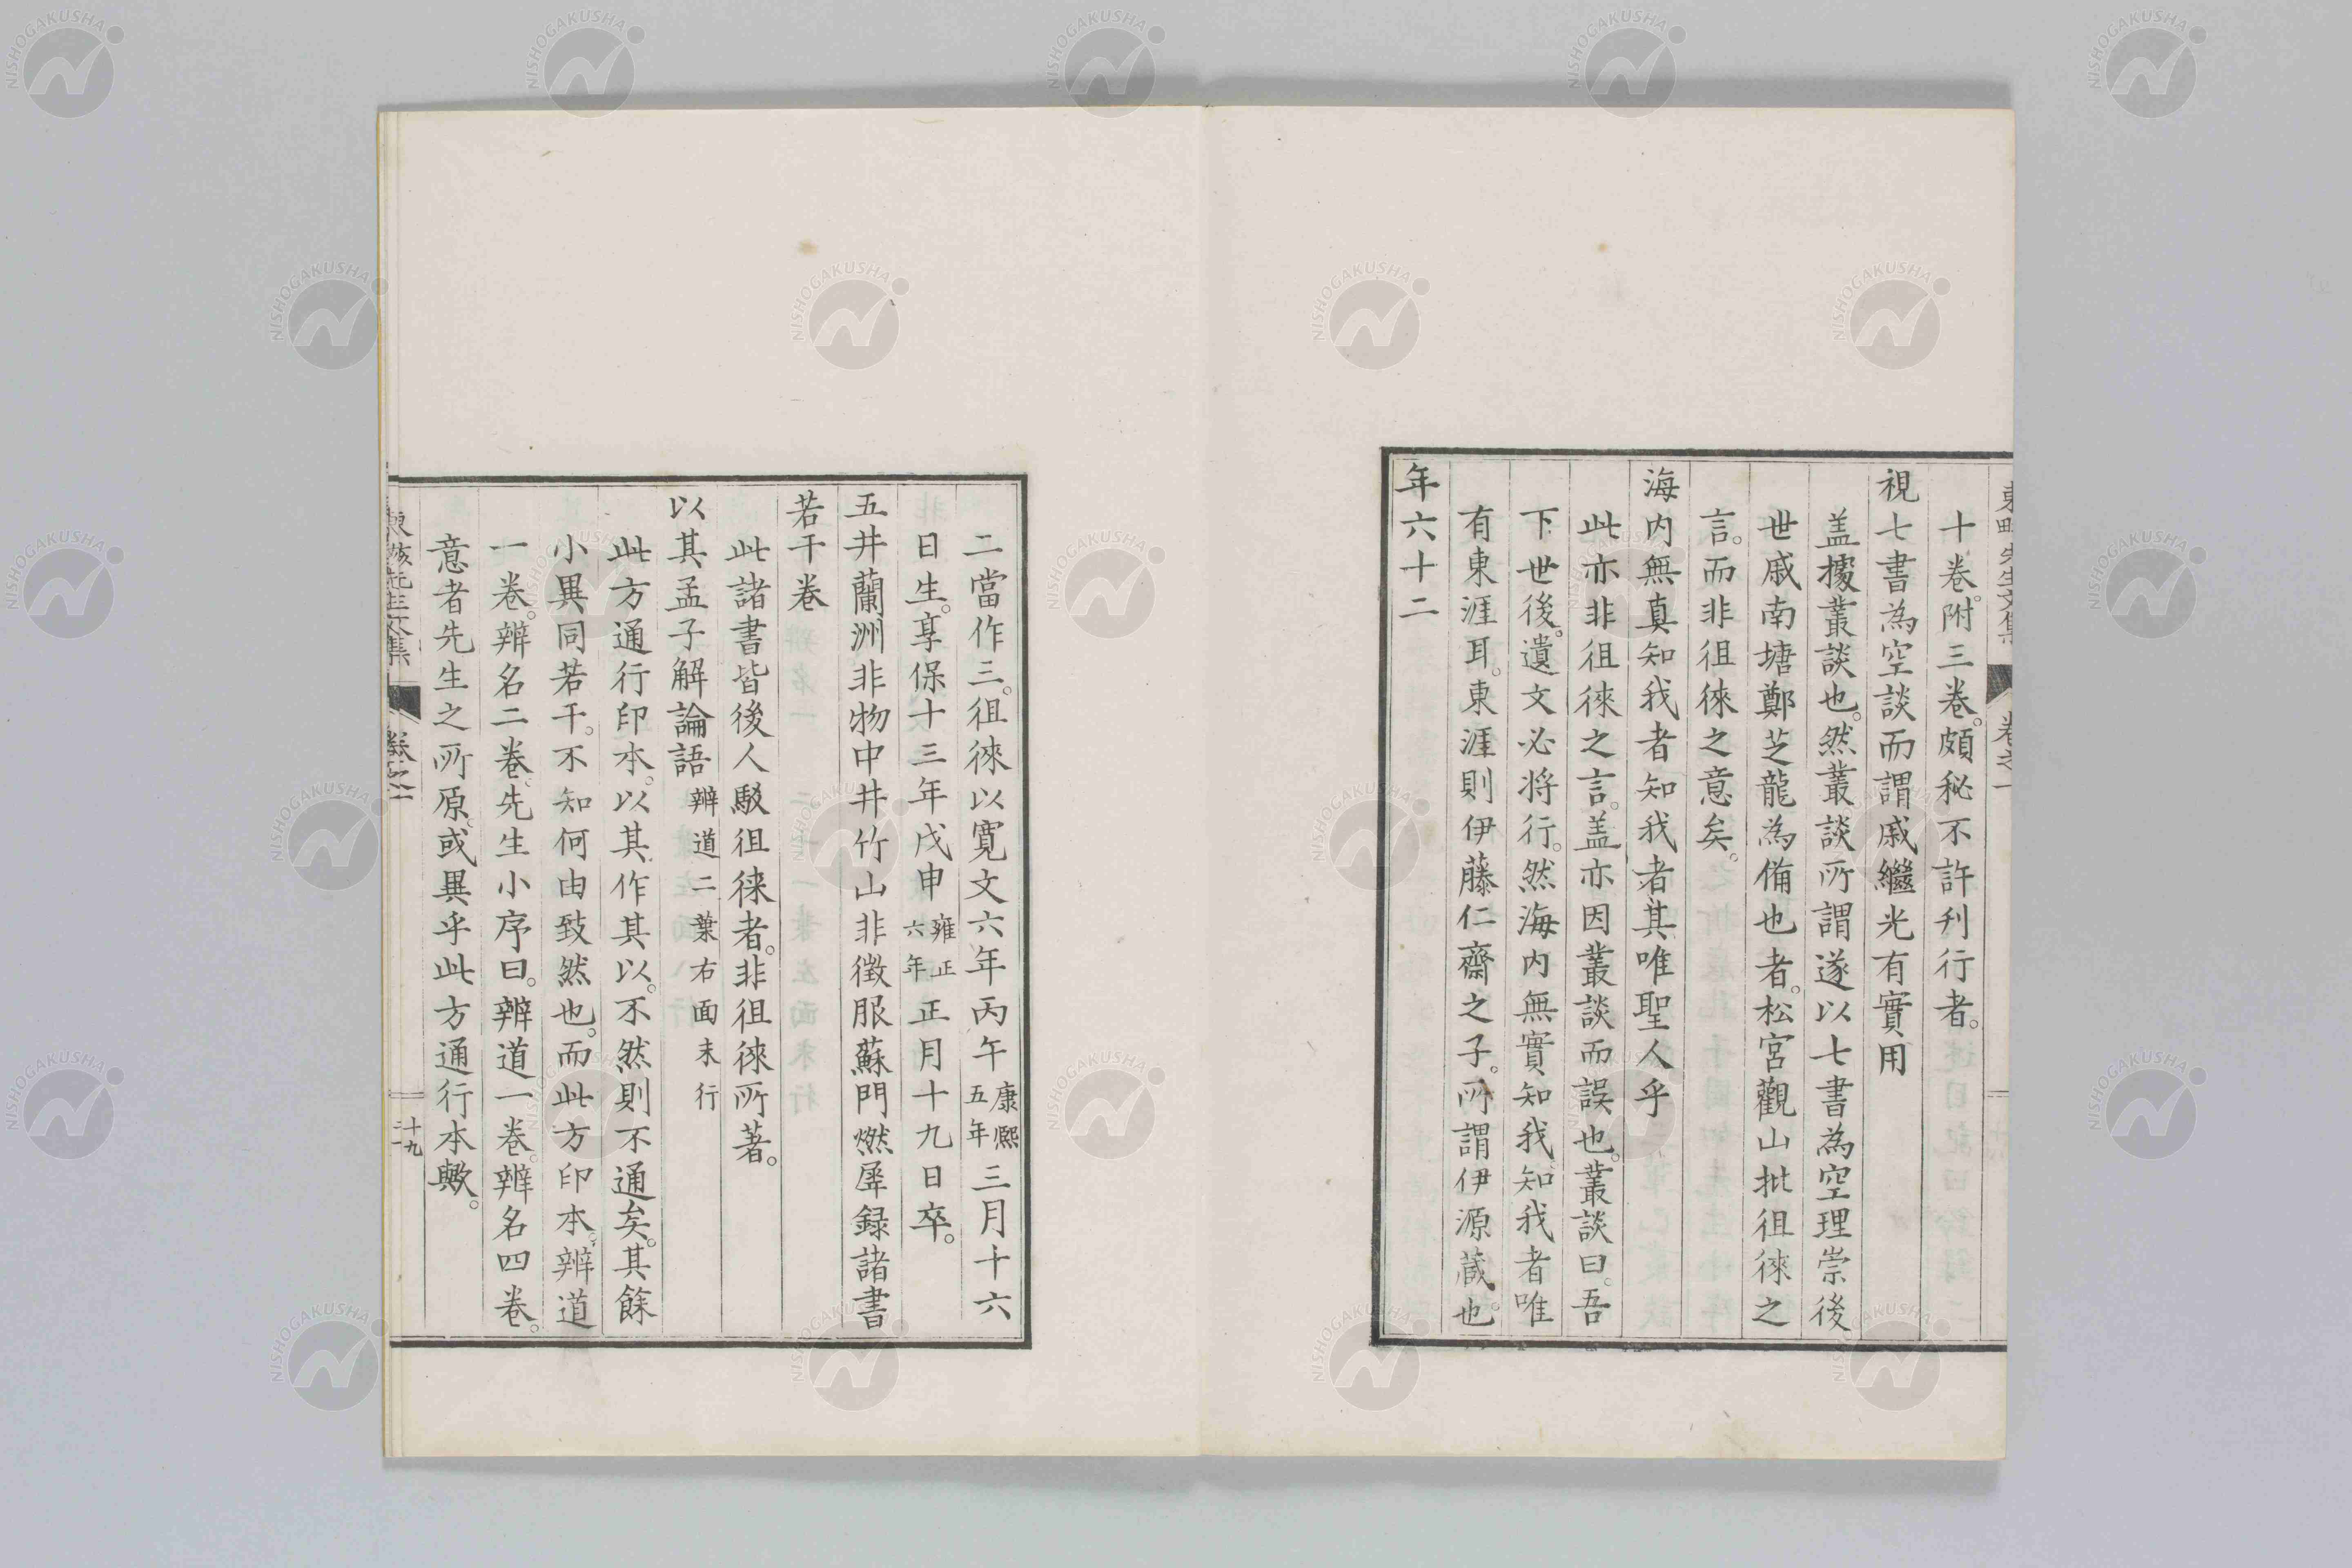 十卷。附三卷。頗秘不許刋行者。
視七書為空談而謂戚繼光有實用
盖據叢談也。然叢談所謂遂以七書為空理崇後
世戚南塘鄭芝龍為備也者。松宮觀山批徂徠之
言。而非徂徠之意矣。
海内無真知我者知我者其唯聖人乎
此亦非徂徠之言。盖亦因叢談而誤也。叢談曰。吾
下世後。遺文必將行。然海内無實知我。知我者唯
有東涯耳。東涯則伊藤仁齋之子。所謂伊源藏也。
年六十二
二當作三。徂徠以寛文六年丙午康熙五年三月十六
日生。享保十三年戊申雍正六年正月十九日卒。
五井蘭洲非物中井竹山非徴服蘇門燃犀録諸書
若干卷
此諸書皆後人駁徂徠者。非徂徠所著。
以其孟子解論語辨道二葉右面末行
此方通行印本。以其作其以。不然則不通矣。其餘
小異同若干。不知何由致然也。而此方印本。辨道
一卷。辨名二卷。先生小序曰。辨道一卷。辨名四卷。
意者先生之所原。或異乎此方通行本歟。
卷之一
十九